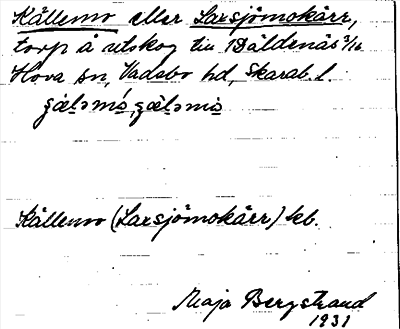 Källemo eller Larsjömokärr,
torp å utskog till Däldenäs 3/16
Hova sn, Vadsbo hd, Skarab. l.
Källemo (Larsjömokärr) kb.
Maja Bergstrand
1931